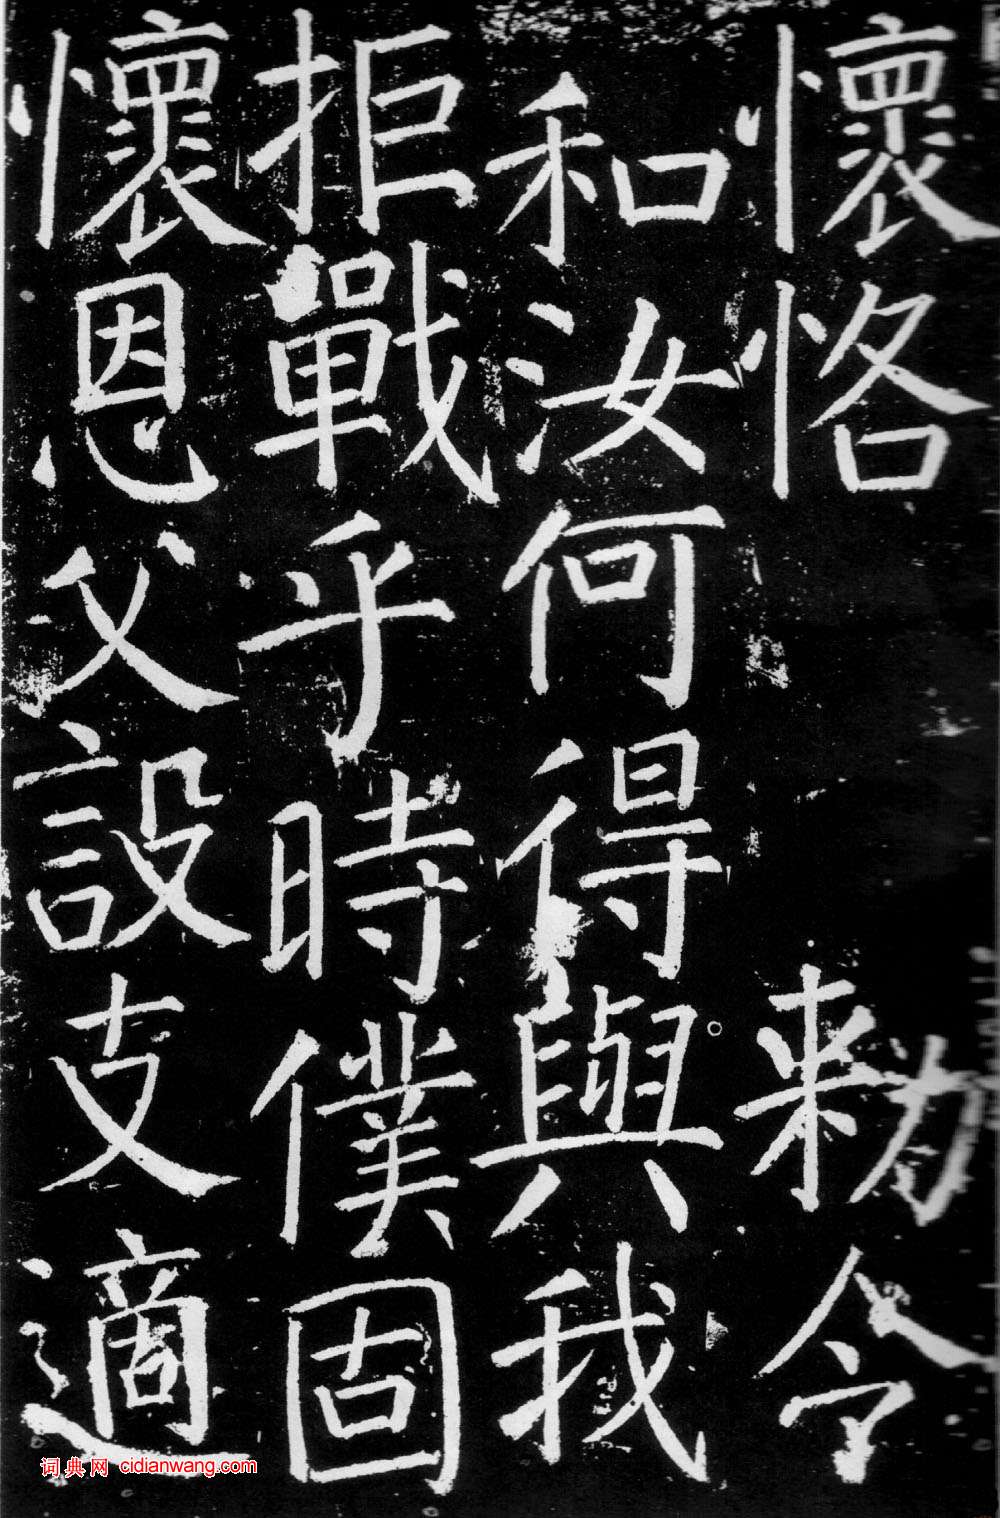 懷恪 勑令
和汝何得與我
拒戰乎時僕固
懷恩父設支適
词典网 cidianwang.com